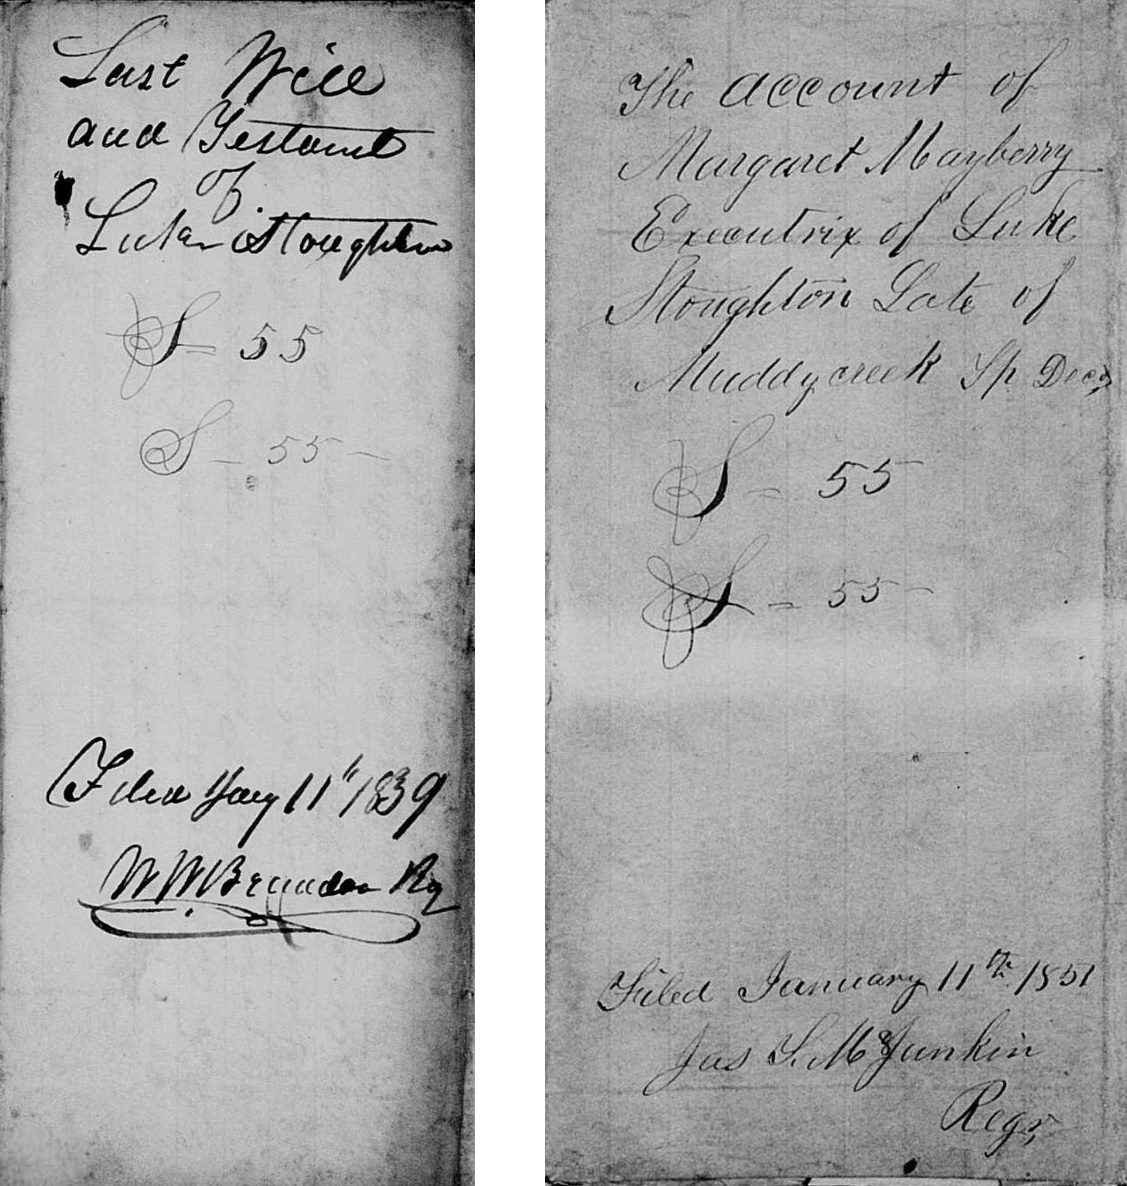 Last Will
and Testamt
of
Luke Stoughton
S - 55
S - 55 -
Filed Jany 11th 1839
W W Brandon Rg
The account of
Margaret Mayberry
Executrix of Luke
Stoughton Late of
Muddycreek Tp Decd
S - 55
S - 55 -
Filed January 11th 1851
Jas S. McJunkin
Regr